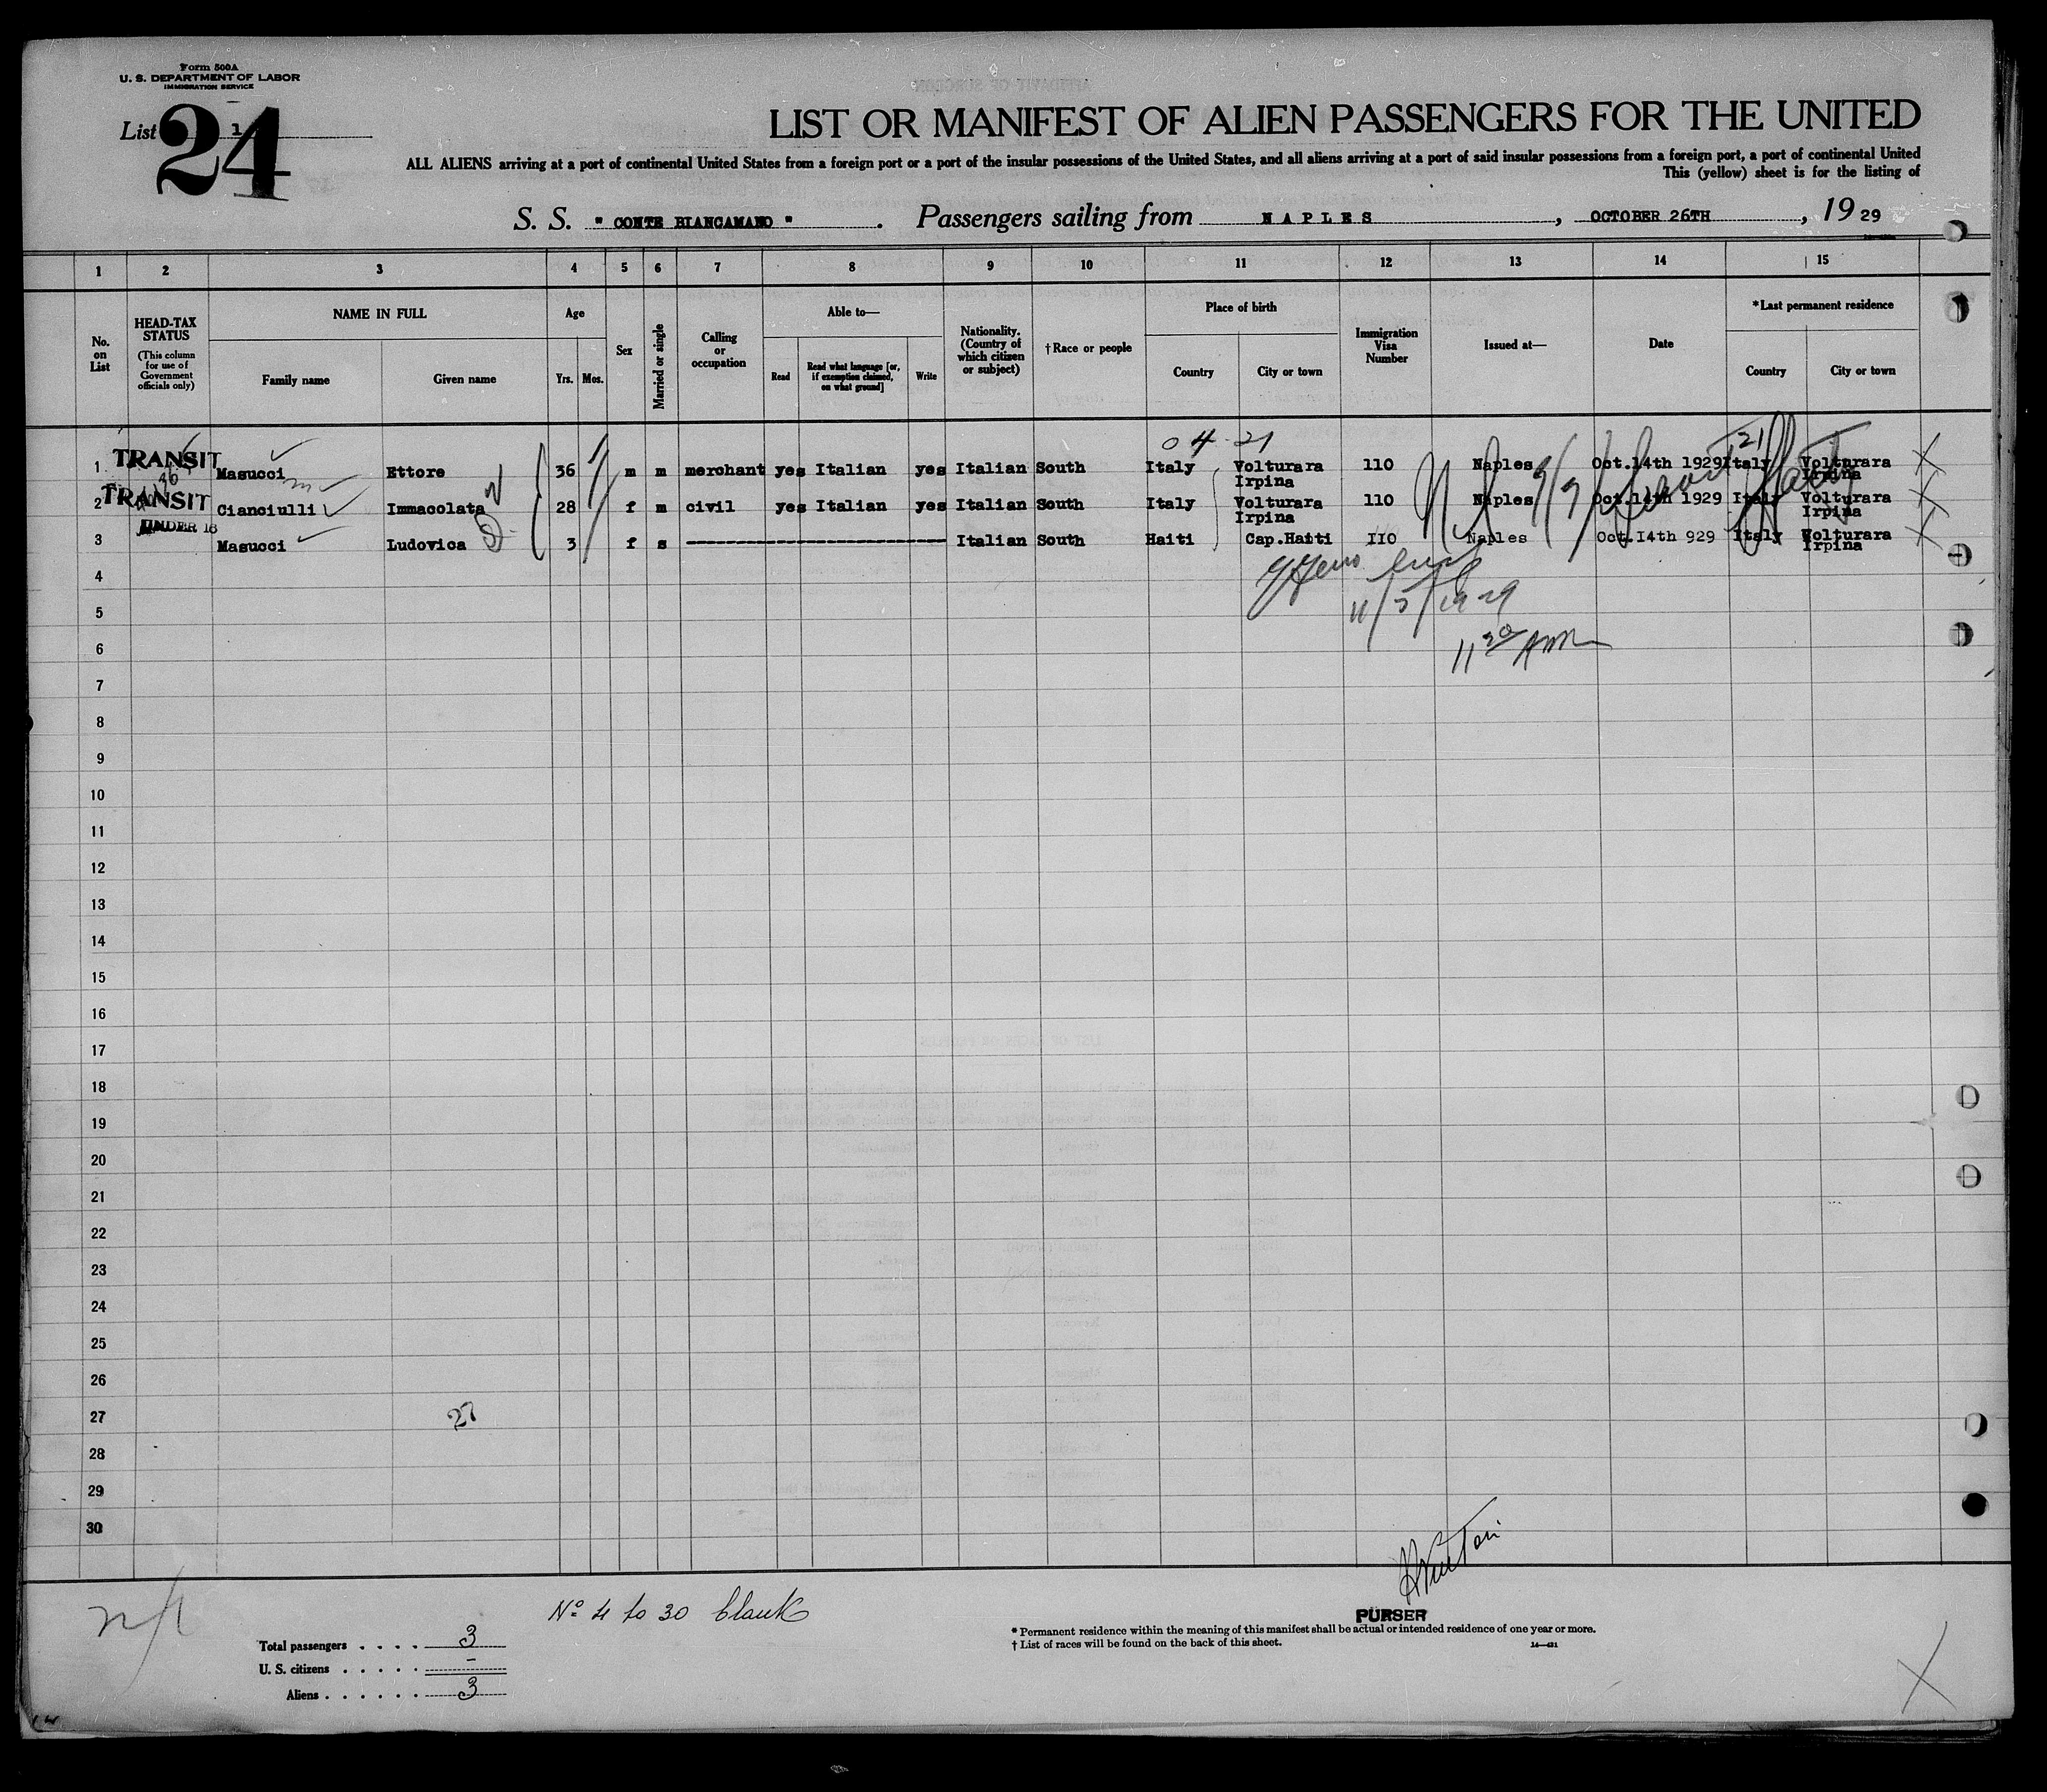 Form 500A
U. S. DEPARTMENT OF LABOR
IMMIGRATION SERVICE
List 1
24
LIST OR MANIFEST OF ALIEN PASSENGERS FOR THE UNITED
ALL ALIENS arriving at a port of continental United States from a foreign port or a port of the insular possessions of the United States, and all aliens arriving at a port of said insular possessions from a foreign port, a port of continental United
This (yellow) sheet is for the listing of
S. S. " CONTE BIANCAMANO " . Passengers sailing from NAPLES , OCTOBER 26TH , 19 29
1 2 3 4 5 6 7 8 9 10 11 12 13 14 15
No. on List
HEAD-TAX STATUS (This column for use of Government officials only)
NAME IN FULL
Family name Given name
Age
Yrs. Mos.
Sex
Married or single
Calling or occupation
Able to—
Read
Read what language [or, if exemption claimed, on what ground]
Write
Nationality. (Country of which citizen or subject)
† Race or people
Place of birth
Country City or town
Immigration Visa Number
Issued at—
Date
*Last permanent residence
Country City or town
04-21
21
1 TRANSIT Masucci Ettore 36 m m merchant yes Italian yes Italian South Italy Volturara Irpina 110 Naples Oct.14th 1929 Italy Volturara Irpina X
2 TRANSIT Cianciulli Immacolata 28 f m civil yes Italian yes Italian South Italy Volturara Irpina 110 Naples Oct.14th 1929 Italy Volturara Irpina X
UNDER 16
3 Masucci Ludovica 3 f s Italian South Haiti Cap.Haiti 110 Naples Oct.I4th 929 Italy Volturara Irpina X
11/5/1929
11 30 AM
4
5
6
7
8
9
10
11
12
13
14
15
16
17
18
19
20
21
22
23
24
25
26
27 27
28
29
30
No 4 to 30 blank
PURSER
Total passengers . . . . 3
U. S. citizens . . . . . -
Aliens . . . . . . 3
* Permanent residence within the meaning of this manifest shall be actual or intended residence of one year or more.
† List of races will be found on the back of this sheet.
14—431
X